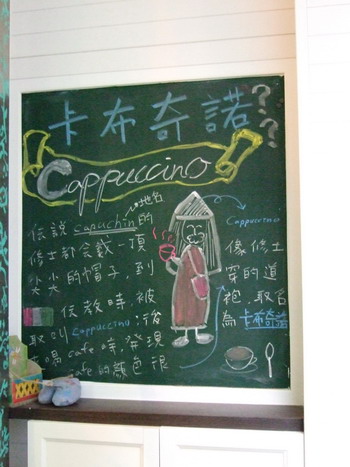 卡布奇諾??
Cappuccino
地名
伝說 capuchin 的
修士都会戴一頂
尖尖的帽子,到
伝教時,被
取叫 Cappuccino;後
來喝 cafe 時,發現
cafe 的顏色很
Cappuccino
像修士
穿的道
袍,取名
為卡布奇諾